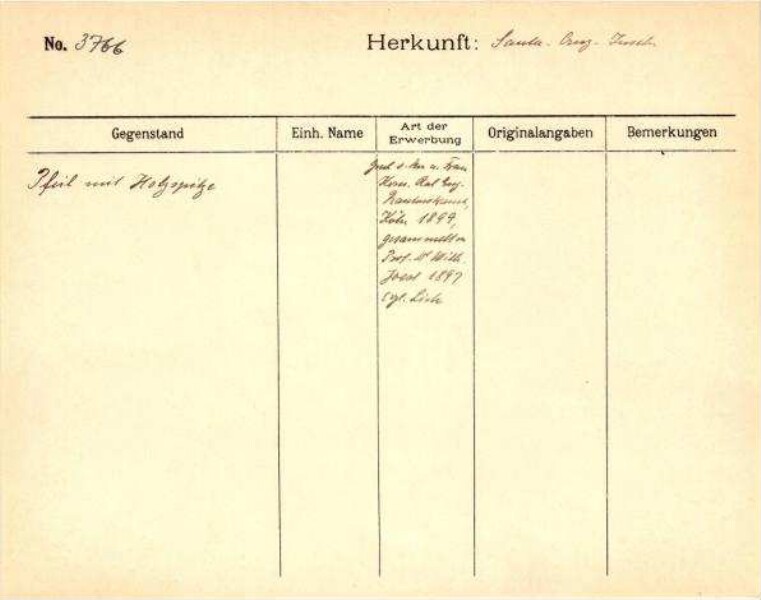 No. 3766 Herkunft: Santa-Cruz-Inseln
Gegenstand Einh. Name Art der Erwerbung Originalangaben Bemerkungen
Pfeil mit Holzspitze
u. Frau
Kom. Rat Eug.
Rautenstrauch,
Köln 1899,
gesammelt v.
Prof. Dr Wilh.
Joest 1897